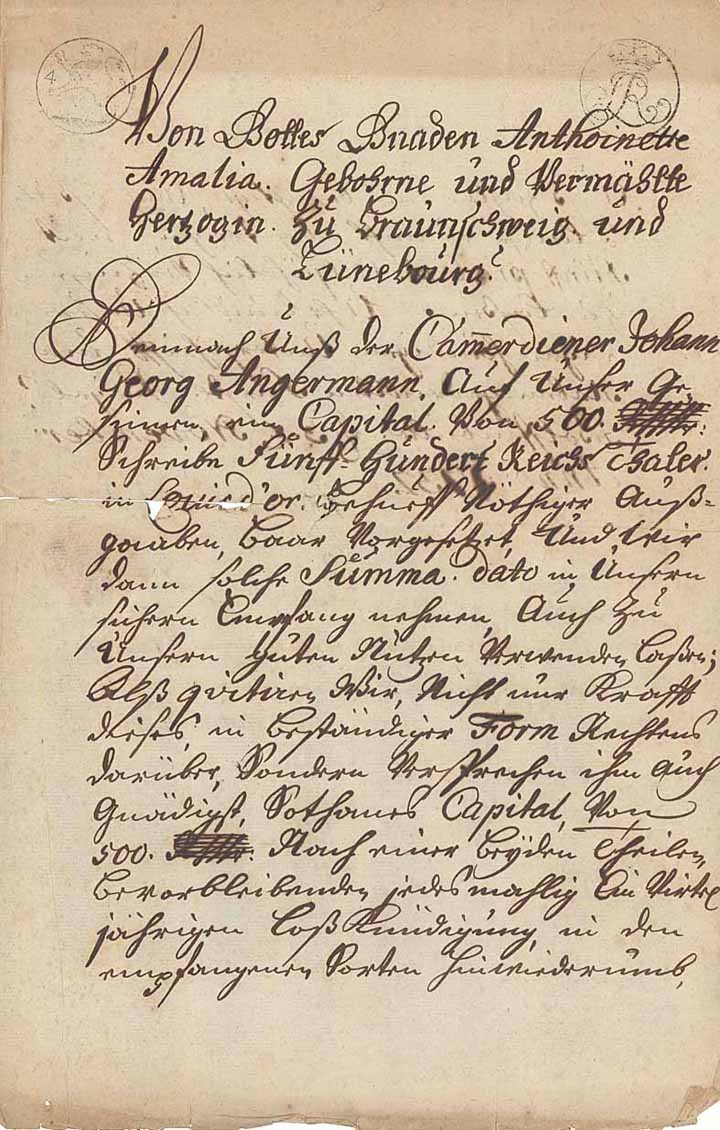 Von Gottes Gnaden Anthoinette
Amalia. Gebohrne und Vermählte
Hertzogin. Zu Braunschweig. und
Lünebourg.
Demnach Unß der Cam̅erdiener Johann
Georg Angermann, Auf Unser Ge-
sinnen, ein Capital. Von 500.
Schreibe Fünff-Hundert Reichs Thaler.
in Louisd'or. Behueff Nöthiger Auß=
gaaben, Baar Vorgesetzet, Und Wir
dann solche Summa. dato in Unsern
sichern Empfang nehmen, Auch Zu
Unsern guten Nutzen Verwenden laßen;
Alß qvitiren Wir, Nicht nur Krafft
dieses, in beständiger Form Rechtens
darüber, Sondern Versprechen ihm Auch
Gnädigst, Sothanes Capital, Von
500. Nach einer beyden Theilen
bevorbleibenden jedesmahlig Ein Virtel
jährigen loß Kündigung, in den
empfangenen Sorten hinwiederumb,